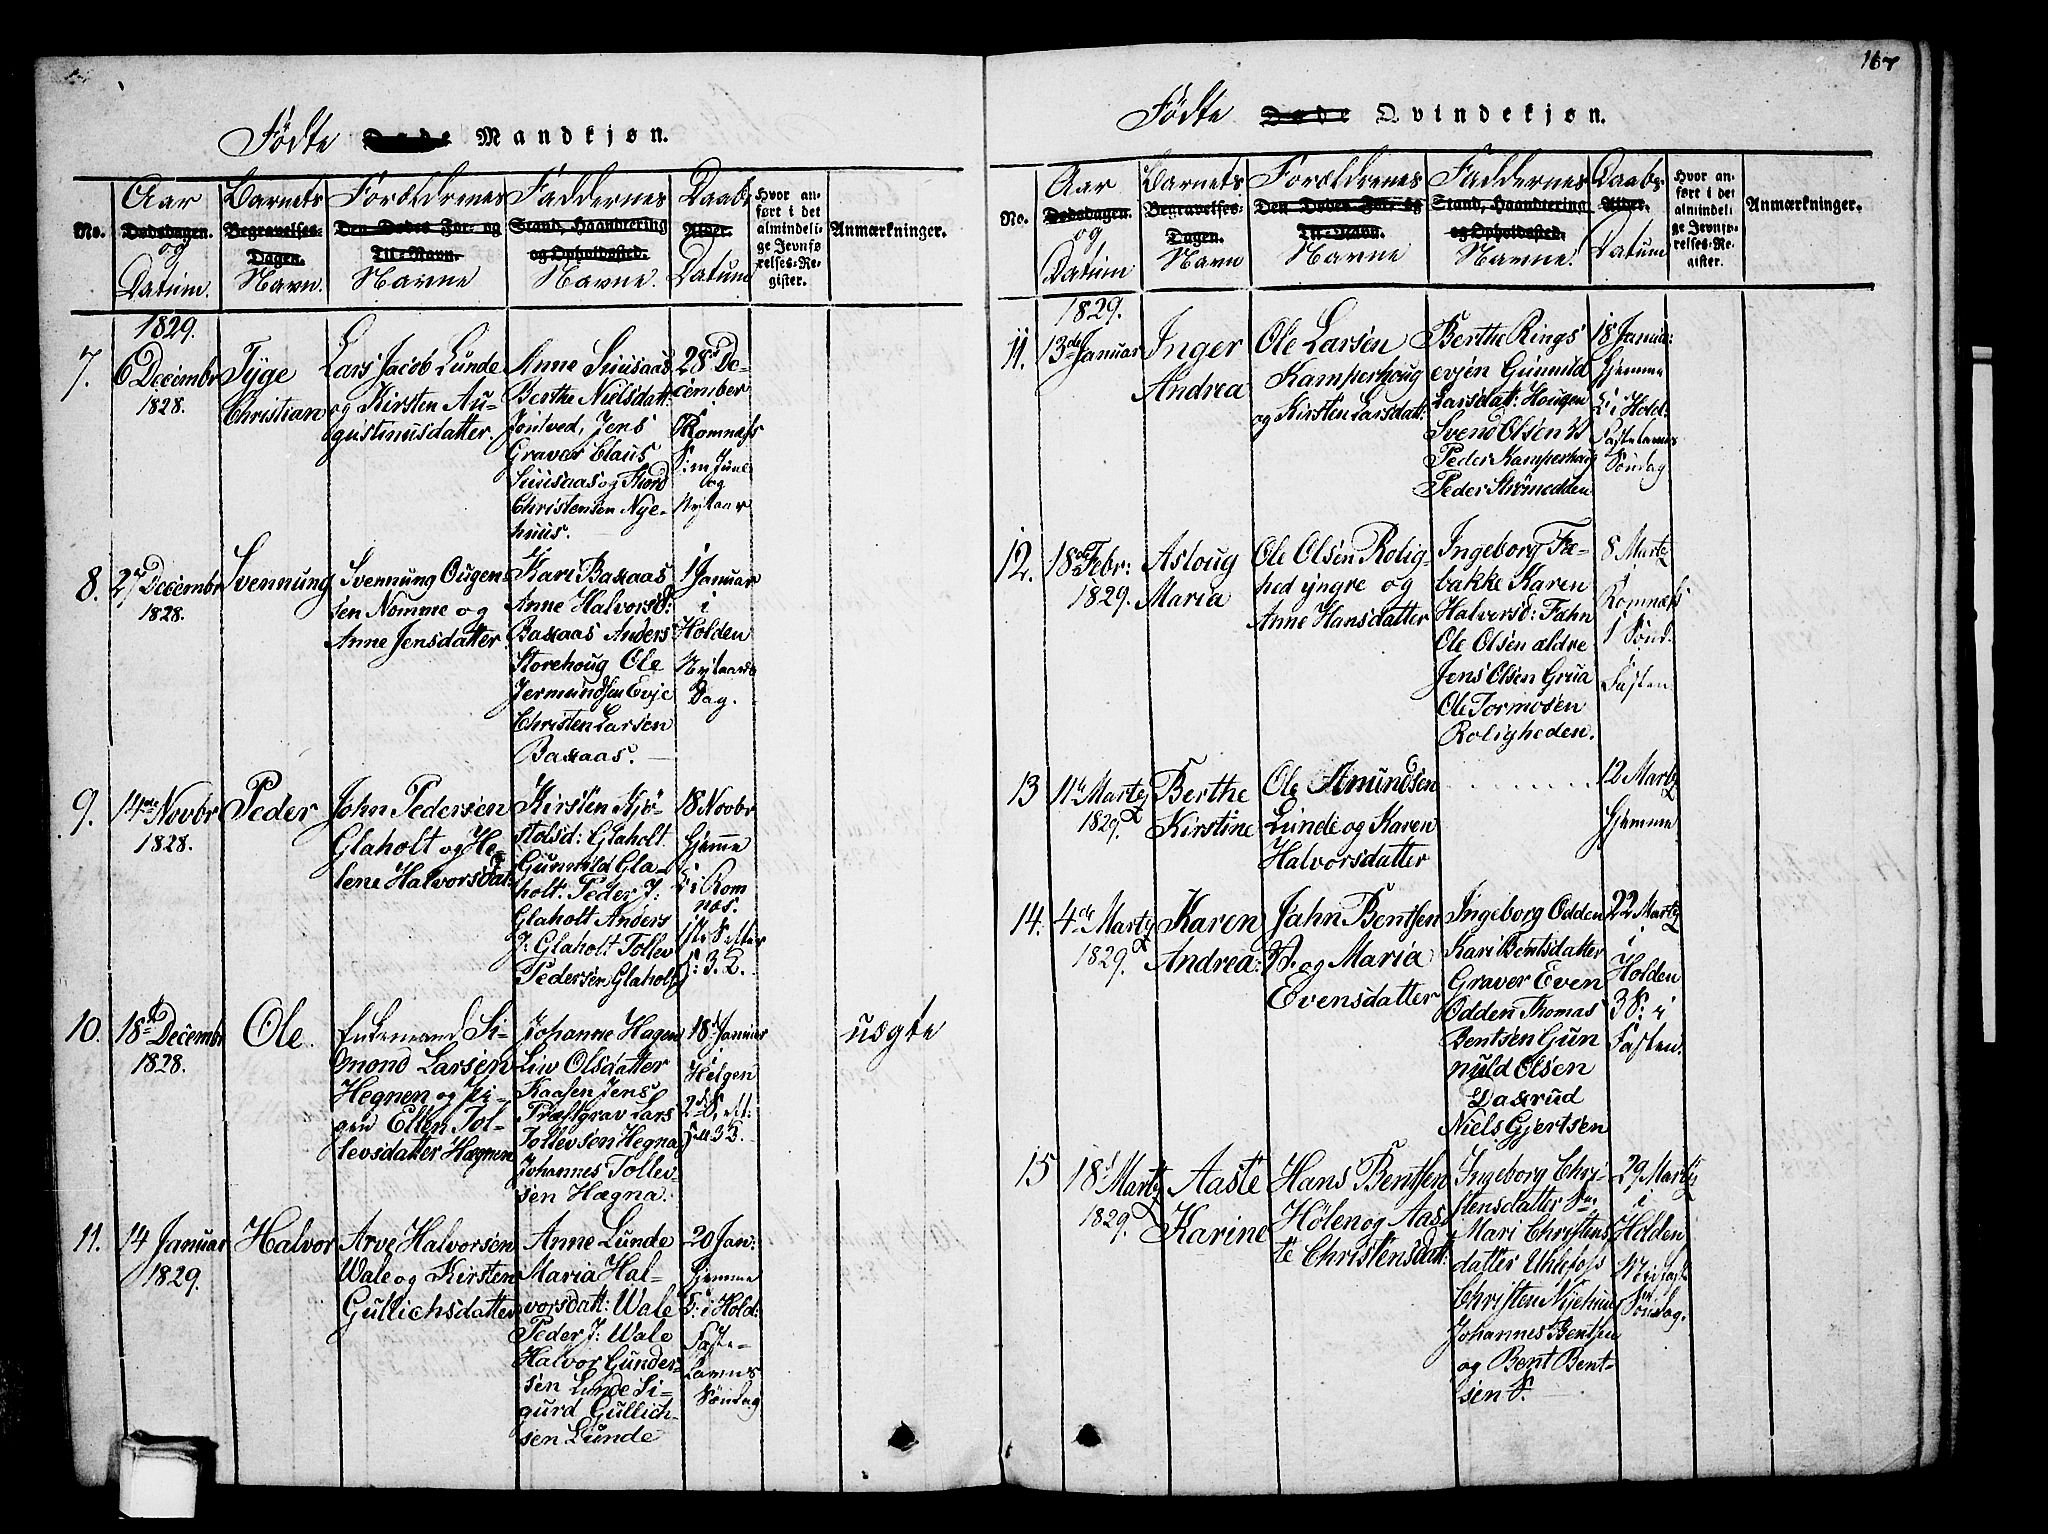 167
Födte Døde Mandkjøn.
No.
Aar
Dødsdagen.
og
Datum.
Barnets
Begravelses-
Dagen.
Navn.
Forældrenes
Den Dødes For- og
Til-Navn.
Navne
Faddernes
Stand, Haandtering
og Opholdssted.
Navne.
Daabs
Alder.
Datum
Hvor an-
ført i det
almindeli-
ge Jevnfø
relses-Re-
gister.
Anmærkninger.
1829.
7.
6 Decembr
1828.
Tyge
Christian
Lars Jacob Lunde
og Kirsten Au-
gustinusdatter.
Anne Suusaas
Berthe Nielsdatt:
Jøntved, Jens
Graver Claus
Suusaas og Thord
Christensen Nye-
huus.
28d De-
cember
Romnæss
S: m. Juul
og
Nytaar
8.
27 Decembr
1828.
Svennung
Svennung Ougen-
sen Nomme og
Anne Jensdatter.
Kari Baxaas
Anne Halvorsd:
Baxaas Anders
Storehoug Ole
Jermundsen Evje
Christen Larsen
Baxaas.
1 Januar
i
Holden
Nytaars
Dag.
9.
14de Novbr
1828.
Peder
John Pedersen
Glaholt og He-
lene Halvorsdat:
Kirsten Kjö-
stolsd: Glaholt
Gunnild Gla-
holt. Peder J:
Glaholt Anders
J: Glaholt Tollev
Pedersen Glaholt
18 Novbr
Hjemme
i Rom
næs.
1ste S. efter
H: 3. K.
10.
18de Decembr
1828.
Ole.
Enkemand Si-
mond Larsen
Hegnen og Pi-
gen Ellen Tol-
levsdatter Hægnen
Johanne Hagen
Liv Olsdatter
Kaasen Jens
Præstgrav Lars
Tollevsen Hegna
Johannes Tollev-
sen Hægna.
18d Januar
i
Helgen
2d S. eft:
H 3 K.
uægte
11.
14 Januar
1829.
Halvor
Arve Halvorsen
Wale og Kirsten
Gullichsdatter
Anne Lunde
Maria Hal-
vorsdatt: Wale
Peder J: Wale
Halvor Gunder-
sen Lunde Si-
gurd Gullich-
sen Lunde
20 Jan:
Hjemme
i Hold:
Faste-
Lavns
Söndag
Födte Døde Qvindekjøn.
No.
Aar
Dødsdagen.
og
Datum
Barnets
Begravelses-
Dagen.
Navn
Forældrenes
Den Dødes For- og
Til-Navn.
Navne
Faddernes
Stand, Haandtering
og Opholdssted.
Navne.
Daabs
Alder.
Datum
Hvor an-
ført i det
almindeli-
ge Jevnfø-
relses-Re-
gister.
Anmærkninger.
1829.
11.
13de Januar
Inger
Andrea
Ole Larsen
Kamperhoug
og Kirsten Larsdatt:
Berthe Rings
evjen Gunuld
Larsdat: Hougen
Svend Olsen
Peder Kamperhoug
Peder Strömodden
18 Janua:
Hjemme
i Hold:
Fastelavns
Söndag
12.
18de Febr:
1829.
Asloug
Maria
Ole Olsen Rolig-
hed yngre og
Anne Hansdatter
Ingeborg Fæ-
bakke Karen
Halversd: Fahn
Ole Olsen ældre
Jens Olsen Grua
Ole Tormosen
Roligheden.
8 Martz
Romnæss
1 Sönd:
Fasten
13
11te Martz
1829.
Berthe
Kirstine
Ole Amundsen
Lunde og Karen
Halvorsdatter
. . . . . . . .
12 Martz
Hjemme
14.
4de Martz
1829.
Karen
Andrea:
Jahn Bentsen
P. og Maria
Evensdatter
Ingeborg Odden
Kari Bentsdatter
Graver Even
Odden Thomas
Bentsen Gun
nuld Olsen
Daxrud
Niels Gjertsen
22 Martz
i
Holden
3 S: i
Fasten.
15
18d Martz
1829.
Aaste
Karine
Hans Bentsen
Hølen og Aas-
te Christensdatt:
Ingeborg Chri-
stensdatter
Mari Christens
datter Uhlefoss
Christen Nyehuus
Johannes Bentsen
og Bent Bent-
sen S.
29 Martz
i
Holden
Midfaste
Söndag.